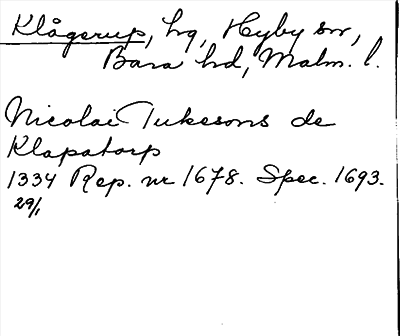 Klågerup, hg, Hyby sn,
Bara hd, Malm. l.
Nicolai Tukesons de
Klapatorp
1334 Rep. nr 1678. Spec. 1693.
29/1